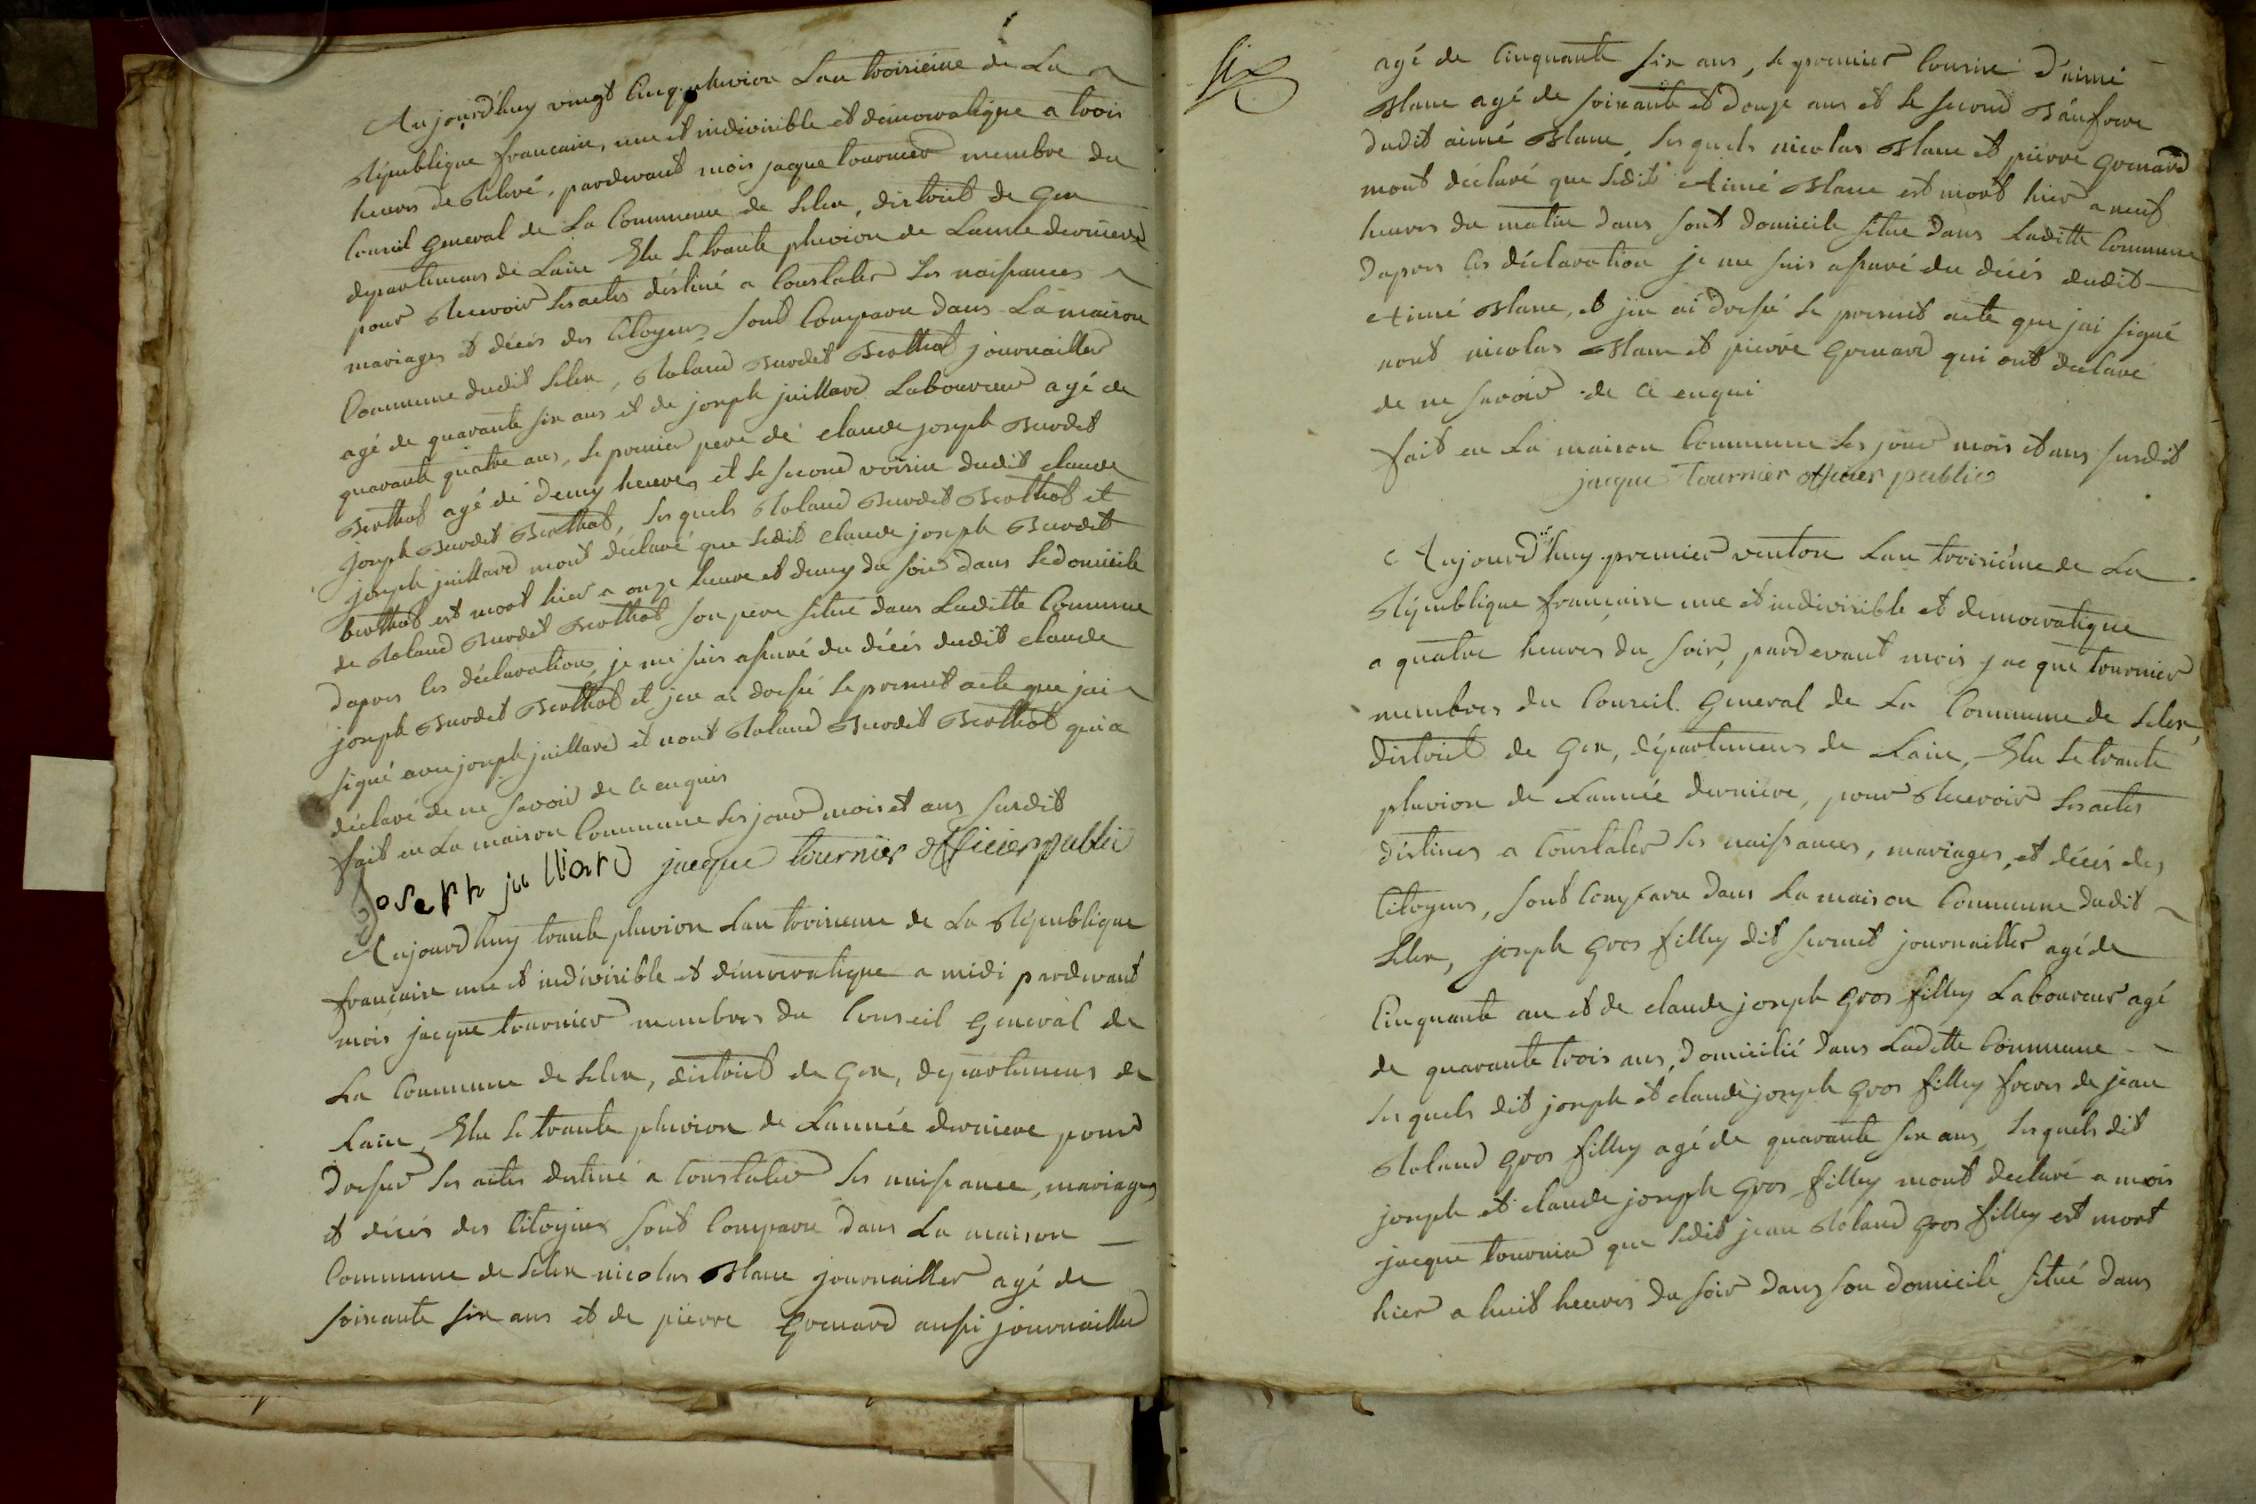 Aujourd'huy vingt cinq pluviose Lan troisieme de La
République francaise, une et indivisible et démocratique a trois
heures de Relevé, pardevant mois jacque tournier membre du
Conseil General de La Commune de Lelex, district de Gex
departemens de Lain Elu Le trante pluviose de Lanné derniere
pour Recevoir Les actes déstiné a Constater Les naissances
mariages et décés des Citoyens, sont Comparu dans La maison
Commune dudit Lelex, Roland Burdet Berthot journailler
agé de quarante six ans et de joseph juillard Laboureur agé de
quarante quatre ans, Le premier pere de claude joseph Burdet
Berthot agé de demy heures et Le second voisin dudit claude
Joseph Burdet Berthot, Les quels Roland Burdet Berthot et
joseph juillard mont déclaré que Ledit claude joseph Burdet
berthot est mort hier a onze heure et demy du soir dans Le domicile
de Roland Burdet Berthot son pere situé dans Laditte Commune
dapres Ces déclarations, je me suis assuré du décés dudit claude
joseph Burdet Berthot et jen ai dressé Le present acte que jai
signé avec joseph juillard et nont Roland Burdet Berthot qui a
déclaré de ne savoir de Ce enquis
fait en La maison Commune Les jour mois et ans susdit
Joseph julliard jacque tournier officier public
Aujourdhuy trante pluviose Lan troisieme de La République
francaise une et indivisible et démocratique a midi pardevant
mois jacque tournier membres du Conseil General de
La Commune de Lelex, district de Gex, departemens de
Lain, Elu Le trante pluviose de Lannée derniere pour
dresser Les actes destiné a Constater Les naissance, mariages
et décés des Citoyens sont Comparu dans La maison
Commune de Lelex nicolas Blanc journailler agé de
soixante six ans et de pierre Grenard aussi journailler
six
agé de Cinquante six ans, Le premier Cousin d'aimé
Blanc agé de soixante et douze ans et Le second Beaufrere
dudit aimé Blanc, Les quels nicolas Blanc et pierre Grenard
mont déclaré que Ledit Aimé Blanc est mort hier a neuf
heures du matin dans sont domicile situé dans Laditte Commune
dapres Ces déclaration je me suis assuré du décés dudit
Aimé Blanc, et jen ai dressé Le present acte que jai signé
nont nicolas Blanc et pierre Grenard qui ont déclaré
de ne savoir de Ce enqui
fait en La maison Commune Les jour mois et ans susdit
jacque Tournier officier public
Aujourd'huy premier ventose Lan troisiéme de La
République francaise une et indivisible et democratique
a quatre heures du soir, pardevant mois jacque tournier
membres du Conseil General de La Commune de Lelex,
district de Gex, départemens de Lain, Elu Le trante
pluviose de Lannée derniere, pour Recevoir Les actes
déstines a Constater Les naissances, mariages, et décés des
Citoyens, sont Comparu dans La maison Commune dudit
Lelex, joseph Gros filley dit journailler agé de
Cinquante an et de claude joseph Gros filley Laboureur agé
de quarante trois ans, domicilié dans Laditte Commune
Les quels dit joseph et claude joseph Gros filley freres de jean
Roland Gros filley agé de quarante six ans, Les quels dit
joseph et claude joseph Gros filley mont declaré a mois
jacque tournier que Ledit jean Roland Gros filley est mort
hier a huit heures du soir dans son domicile situé dans